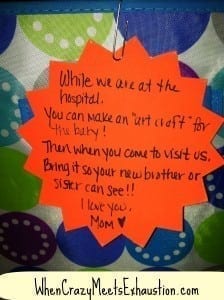 While we are at the
hospital.
You can make an "art craft" for
the baby!
Then when you come to visit us,
Bring it so your new brother or
sister can see!!
I love you,
Mom
WhenCrazyMeetsExhaustion.com